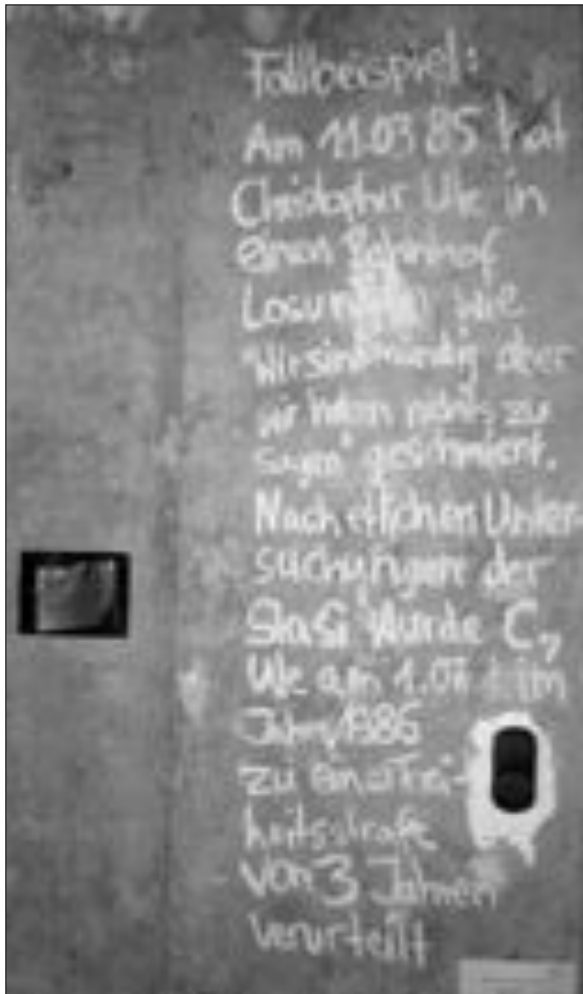 Fallbeispiel:
Am 11.03 85 hat
Christopher Ule in
einen Bahnhof
Losungen wie
"Wir sind mündig aber
wir haben nichts zu
sagen" geschmiert.
Nach etlichen Unter
suchungen der
Stasi wurde C.
Ule am 1.07 im
Jahre 1986
zu einer Frei-
heitsstrafe
von 3 Jahren
verurteilt